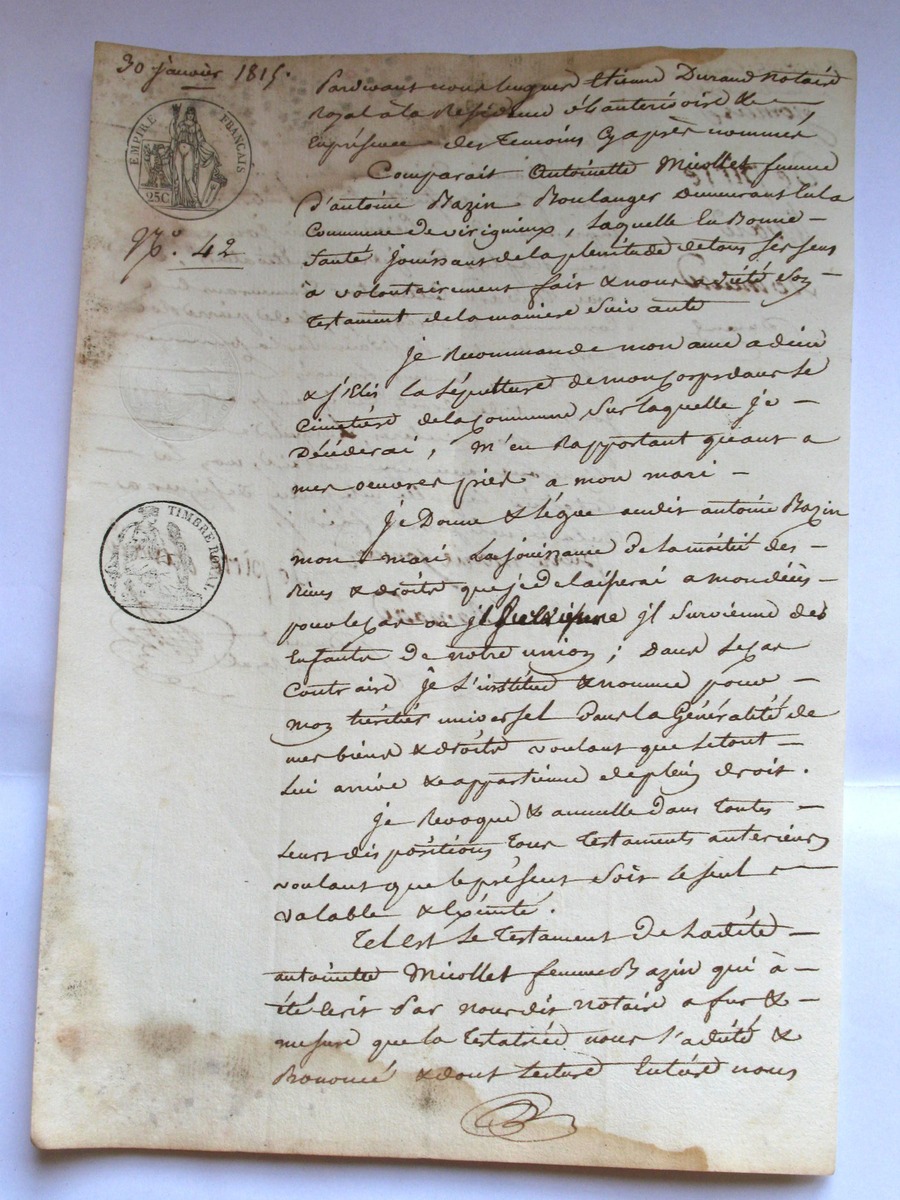 30 janvier 1815.
EMPIRE FRANÇAIS
25C
N.º 42
TIMBRE ROYAL
Pardevant nous Etienne Durand notaire
Royal à la Résidence &
En présence des Temoins Cyaprès nommés
Comparait Antoinette Micollet femme
d'antoine Bazin Boulanger Demeurant En la
Commune de virigneux, Laquelle En Bonne
Santé jouissant de la plenitude de tous ses sens
à volontairement fait & nous a dicté Son
Testament de la maniere Suivante
je Recommande mon ame a dieu
& j'Elis la Sépulture de mon Corps dans le
Cimetière de la Commune Sur laquelle je
Décéderai, m'en Rapportant quant a
mes oeuvres pies a mon mari
je Donne & Légue audit antoine Bazin
mon mari La jouissance de la moitié des
Biens & droits que je delaisserai a mon décès
pour le Cas ou jl jl Survienne des
Enfants de notre union; Dans le Cas
Contraire je L'institue & nomme pour
mon héritier universel Dans la Généralité de
mes biens & droits voulant que le tout
Lui arrive & appartienne de plein droit.
je Revoque & annulle dans Toutes
Leurs dispositions Tous Testaments anterieurs
voulant que le présent Soit le seul
valable & Exécuté.
Tel est Le Testament De Ladite
antoinette Micollet femme Bazin qui à
été Ecrit Par nous dit notaire a fur &
mesure que la Testatrice nous l'a dicté &
Prononcé & dont Lecture Entière nous